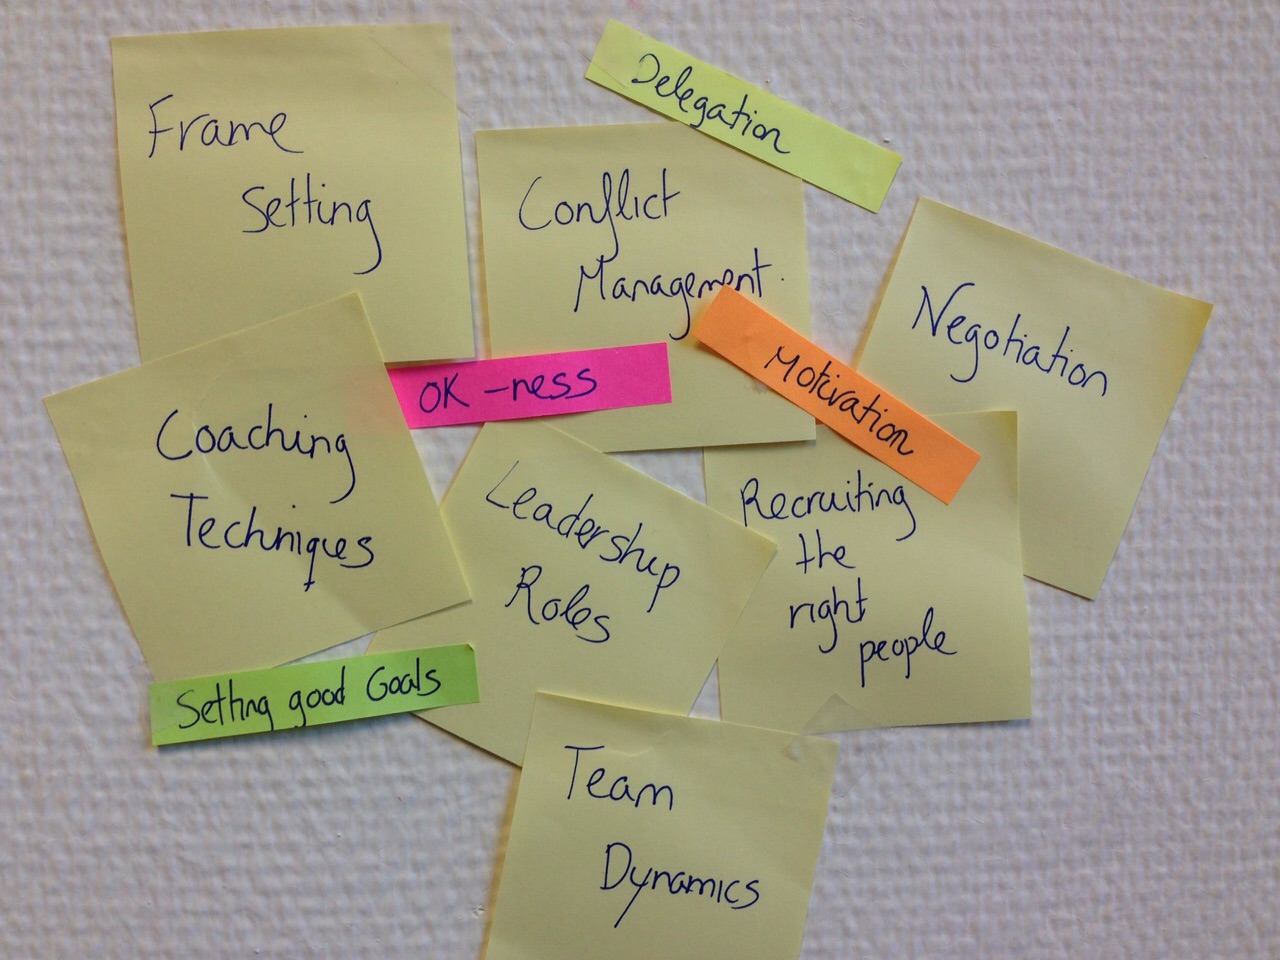 Frame
Setting
Delegation
Conflict
Management.
Negotiation
OK -ness
Motivation
Coaching
Techniques
Leadership
Roles
Recruiting
the
right
people
Setting good Goals
Team
Dynamics